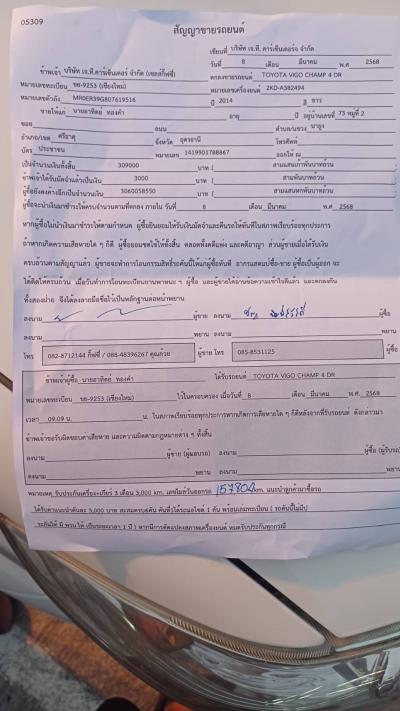 05309
สัญญาขายรถยนต์
เขียนที่ บริษัท เจ.ที.คาร์เซ็นเตอร์ จำกัด
วันที่ 8 เดือน มีนาคม พ.ศ 2568
ข้าพเจ้า บริษัท เจ.ที.คาร์เซ็นเตอร์ จำกัด (เซลล์กี๊ฟซี่) ตกลงขายรถยนต์ TOYOTA VIGO CHAMP 4 DR
หมายเลขทะเบียน ขย-9253 (เชียงใหม่) หมายเลขเครื่องยนต์ 2KD-A382494
หมายเลขตัวถัง MR0ER39G807619516 ปี 2014 สี ขาว
ขายให้แก่ นายอาทิตย์ ทองคำ อายุ ปี อยู่บ้านเลขที่ 73 หมู่ที่ 2
ซอย ถนน ตำบล/แขวง นายูง
อำเภอ/เขต ศรีธาตุ จังหวัด อุดรธานี โทรศัพท์
บัตร ประชาชน หมายเลข 1419901788867 ออกให้ ณ
เป็นจำนวนเงินทั้งสิ้น 309000 บาท ( สามแสนเก้าพันบาทถ้วน
ข้าพเจ้าได้รับมัดจำแล้วเป็นเงิน 3000 บาท ( สามพันบาทถ้วน
ผู้ซื้อยังคงค้างอีกเป็นจำนวนเงิน 3060058550 บาท ( สามแสนหกพันบาทถ้วน
ผู้ซื้อจะนำเงินมาชำระให้ครบจำนวนตามที่ตกลง ภายใน วันที่ 8 เดือน มีนาคม พ.ศ 2568
หากผู้ซื้อไม่นำเงินมาชำระให้ตามกำหนด ผู้ซื้อยินยอมให้ริบเงินมัดจำและคืนรถให้ทันทีในสภาพเรียบร้อยทุกประการ
ถ้าหากเกิดความเสียหายใด ๆ ก็ดี ผู้ซื้อยอมชดใช้ให้ทั้งสิ้น ตลอดทั้งคดีแพ่ง และคดีอาญา ส่วนผู้ขายเมื่อได้รับเงิน
ครบถ้วนตามสัญญาแล้ว ผู้ขายจะทำการโอนกรรมสิทธิ์รถคันนี้ให้แก่ผู้ซื้อทันที อากรแสตมป์ซื้อ-ขาย ผู้ซื้อเป็นผู้ออก จะ
ได้คิดให้ครบถ้วน เมื่อวันทำการโอนทะเบียนยานพาหนะ ๆ ผู้ซื้อ และผู้ขายได้อ่านข้อความเข้าใจดีแล้ว และตกลงกัน
ทั้งสองฝ่าย จึงได้ลงลายมือชื่อไว้เป็นหลักฐานต่อหน้าพยาน
ลงนาม ผู้ขาย ลงนาม ผู้ซื้อ
ลงนาม พยาน ลงนาม พยาน
โทร 082-8712144 กี๊ฟซี่ / 088-48396267 คุณก้วย ผู้ขาย โทร 085-8531125
ข้าพเจ้าผู้ซื้อ นายอาทิตย์ ทองคำ ได้รับรถยนต์ TOYOTA VIGO CHAMP 4 DR
หมายเลขทะเบียน ขย-9253 (เชียงใหม่) ไว้ในครอบครอง เมื่อวันที่ 8 เดือน มีนาคม พ.ศ. 2568
เวลา 09.09 น. น. ในสภาพเรียบร้อยทุกประการหากเกิดการเสียหายใด ๆ ก็ดีหลังจากที่รับรถยนต์ ดังกล่าวมา
ข้าพเจ้าขอรับผิดชอบค่าเสียหาย และความผิดตามกฎหมายต่าง ๆ ทั้งสิ้น
ลงนาม ผู้ขาย (ผู้มอบรถ) ลงนาม ผู้ซื้อ (ผู้รับรถ)
ลงนาม พยาน ลงนาม พยาน
หมายเหตุ รับประกันเครื่อง+เกียร์ 3 เดือน 3,000 km. เลขไมล์วันออกรถ 157804 km. แนะนำลูกค้ามาซื้อรถ
ได้รับค่าแนะนำคันละ 3,000 บาท